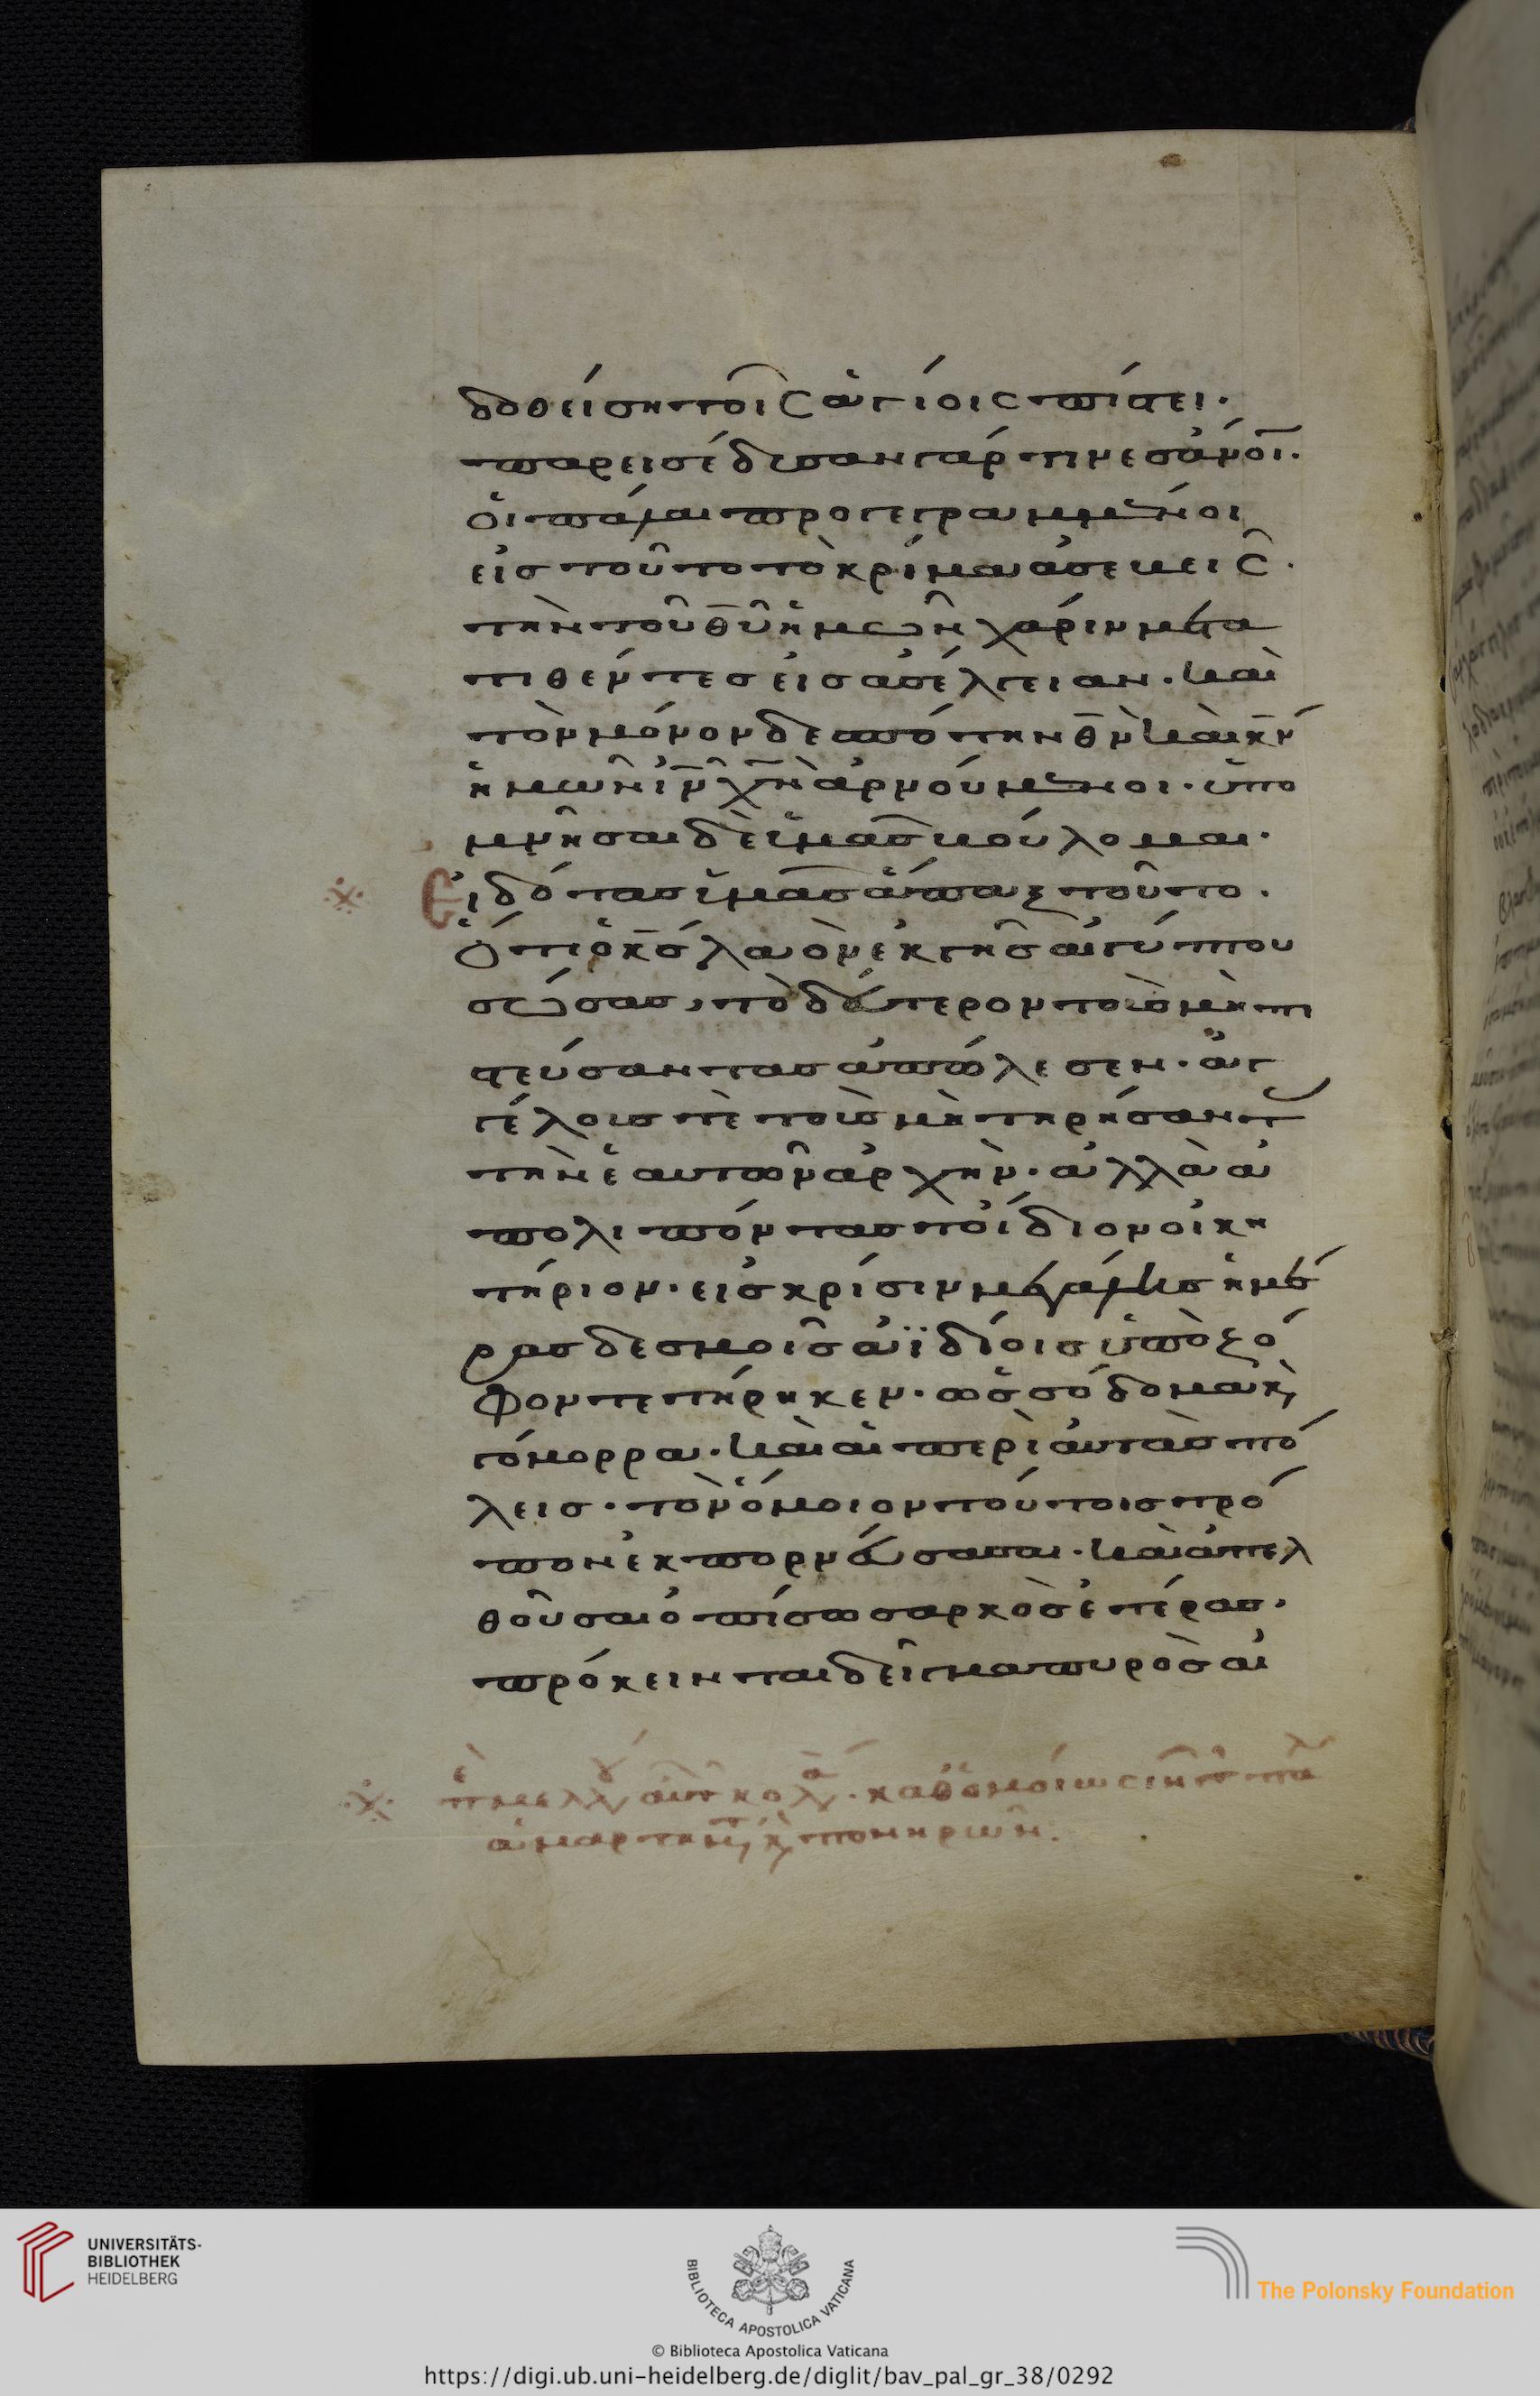 δοθείση τοῖς ἁγίοις πίστει.
παρεισέδυσαν γάρ τινες ἄνοι.
οἱ πάλαι προγεγραμμένοι
εἰς τοῦτο τὸ κρίμα ἀσεβεῖς.
τὴν τοῦ θυ ἡμῶν χάριν μετα
τιθέντες εἰς ἀσέλγειαν. καὶ
τὸν μόνον δεσπότην θν καὶ κν
ἡμῶν ιν χν ἀρνούμενοι. ὑπο
μνῆσαι δὲ ὑμᾶς βούλομαι.
Εἰδότας ὑμᾶς ἅπαξ τοῦτο.
ὅτι ὁ κς λαὸν ἐκ γῆς αἰγύπτου
σώσας, τὸ δεύτερον τοὺς μὴ πι
στεύσαντας ἀπώλεσεν. ἀγ
γέλους τὲ τοὺς μὴ τηρήσαντ
τὴν ἑαυτῶν ἀρχὴν. ἀλλὰ ἀ
πολιπόντας τὸ ἴδιον οἰκη
τήριον. εἰς κρίσιν μεγάλης ἡμέ
ρας δεσμοῖς ἀϊδίοις ὑπὸ ζό
φον τετήρηκεν. ὡς σόδομα κ
γόμορρα. καὶ αἱ περὶ αὐτὰς πό
λεις. τὸν ὅμοιον τούτοις τρό
πον ἐκπορνεύσασαι. καὶ ἀπελ
θοῦσαι ὀπίσω σαρκὸς ἑτέρας.
πρόκεινται δεῖγμα πυρὸς αἰ
ἁμαρτ κ πονηριῶν.
UNIVERSITÄTS-
BIBLIOTHEK
HEIDELBERG
BIBLIOTECA APOSTOLICA VATICANA
The Polonsky Foundation
© Biblioteca Apostolica Vaticana
https://digi.ub.uni-heidelberg.de/diglit/bav_pal_gr_38/0292